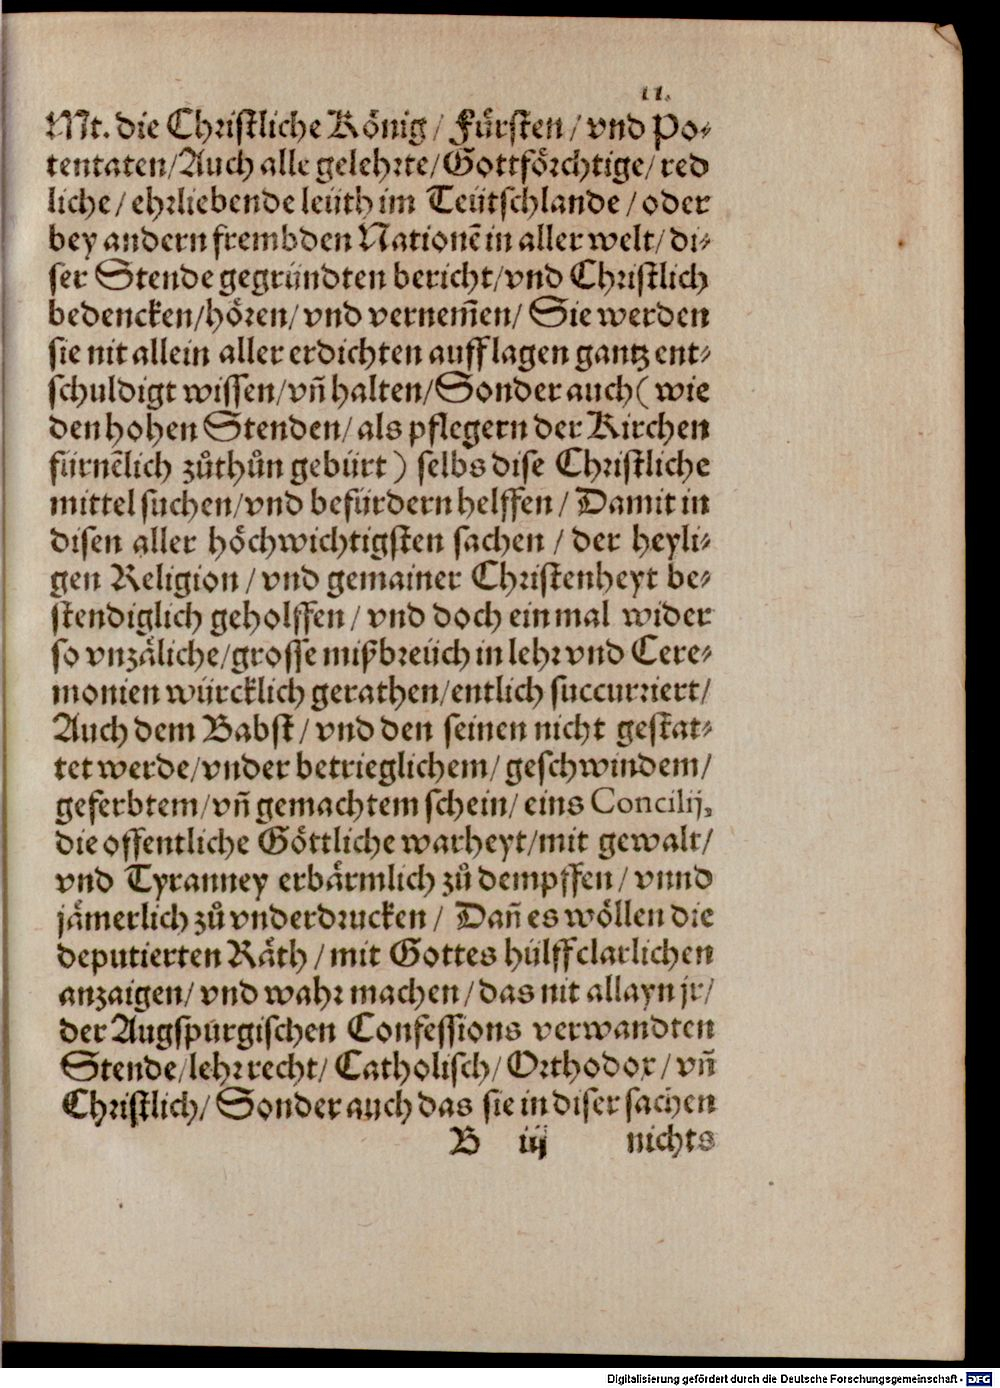 11.
Mt. die Christliche König / Fürsten / vnd Po⸗
tentaten / Auch alle gelehrte / Gottförchtige / red
liche / ehrliebende leüth im Teütschlande / oder
bey andern frembden Nationē in aller welt / di⸗
ser Stende gegründten bericht / vnd Christlich
bedencken / hören / vnd vernem̄en / Sie werden
sie nit allein aller erdichten aufflagen gantz ent⸗
schuldigt wissen / vn̄ halten / Sonder auch ( wie
den hohen Stenden / als pflegern der Kirchen
fürnēlich zůthůn gebürt ) selbs dise Christliche
mittel suchen / vnd befürdern helffen / Damit in
disen aller höchwichtigsten sachen / der heyli⸗
gen Religion / vnd gemainer Christenheyt be⸗
stendiglich geholffen / vnd doch ein mal wider
so vnzäliche / grosse mißbreüch in lehr vnd Cere⸗
monien würcklich gerathen / entlich succurriert /
Auch dem Babst / vnd den seinen nicht gestat⸗
tet werde / vnder betrieglichem / geschwindem /
geferbtem / vn̄ gemachtem schein / eins Concilij,
die offentliche Göttliche warheyt / mit gewalt /
vnd Tyranney erbärmlich zů dempffen / vnnd
jämerlich zů vnderdrucken / Dan̄ es wöllen die
deputierten Räth / mit Gottes hülff clarlichen
anzaigen / vnd wahr machen / das nit allayn jr /
der Augspurgischen Confessions verwandten
Stende / lehr recht / Catholisch / Orthodox / vn̄
Christlich / Sonder auch das sie in diser sachen
B iij nichts
Digitalisierung gefördert durch die Deutsche Forschungsgemeinschaft - DFG